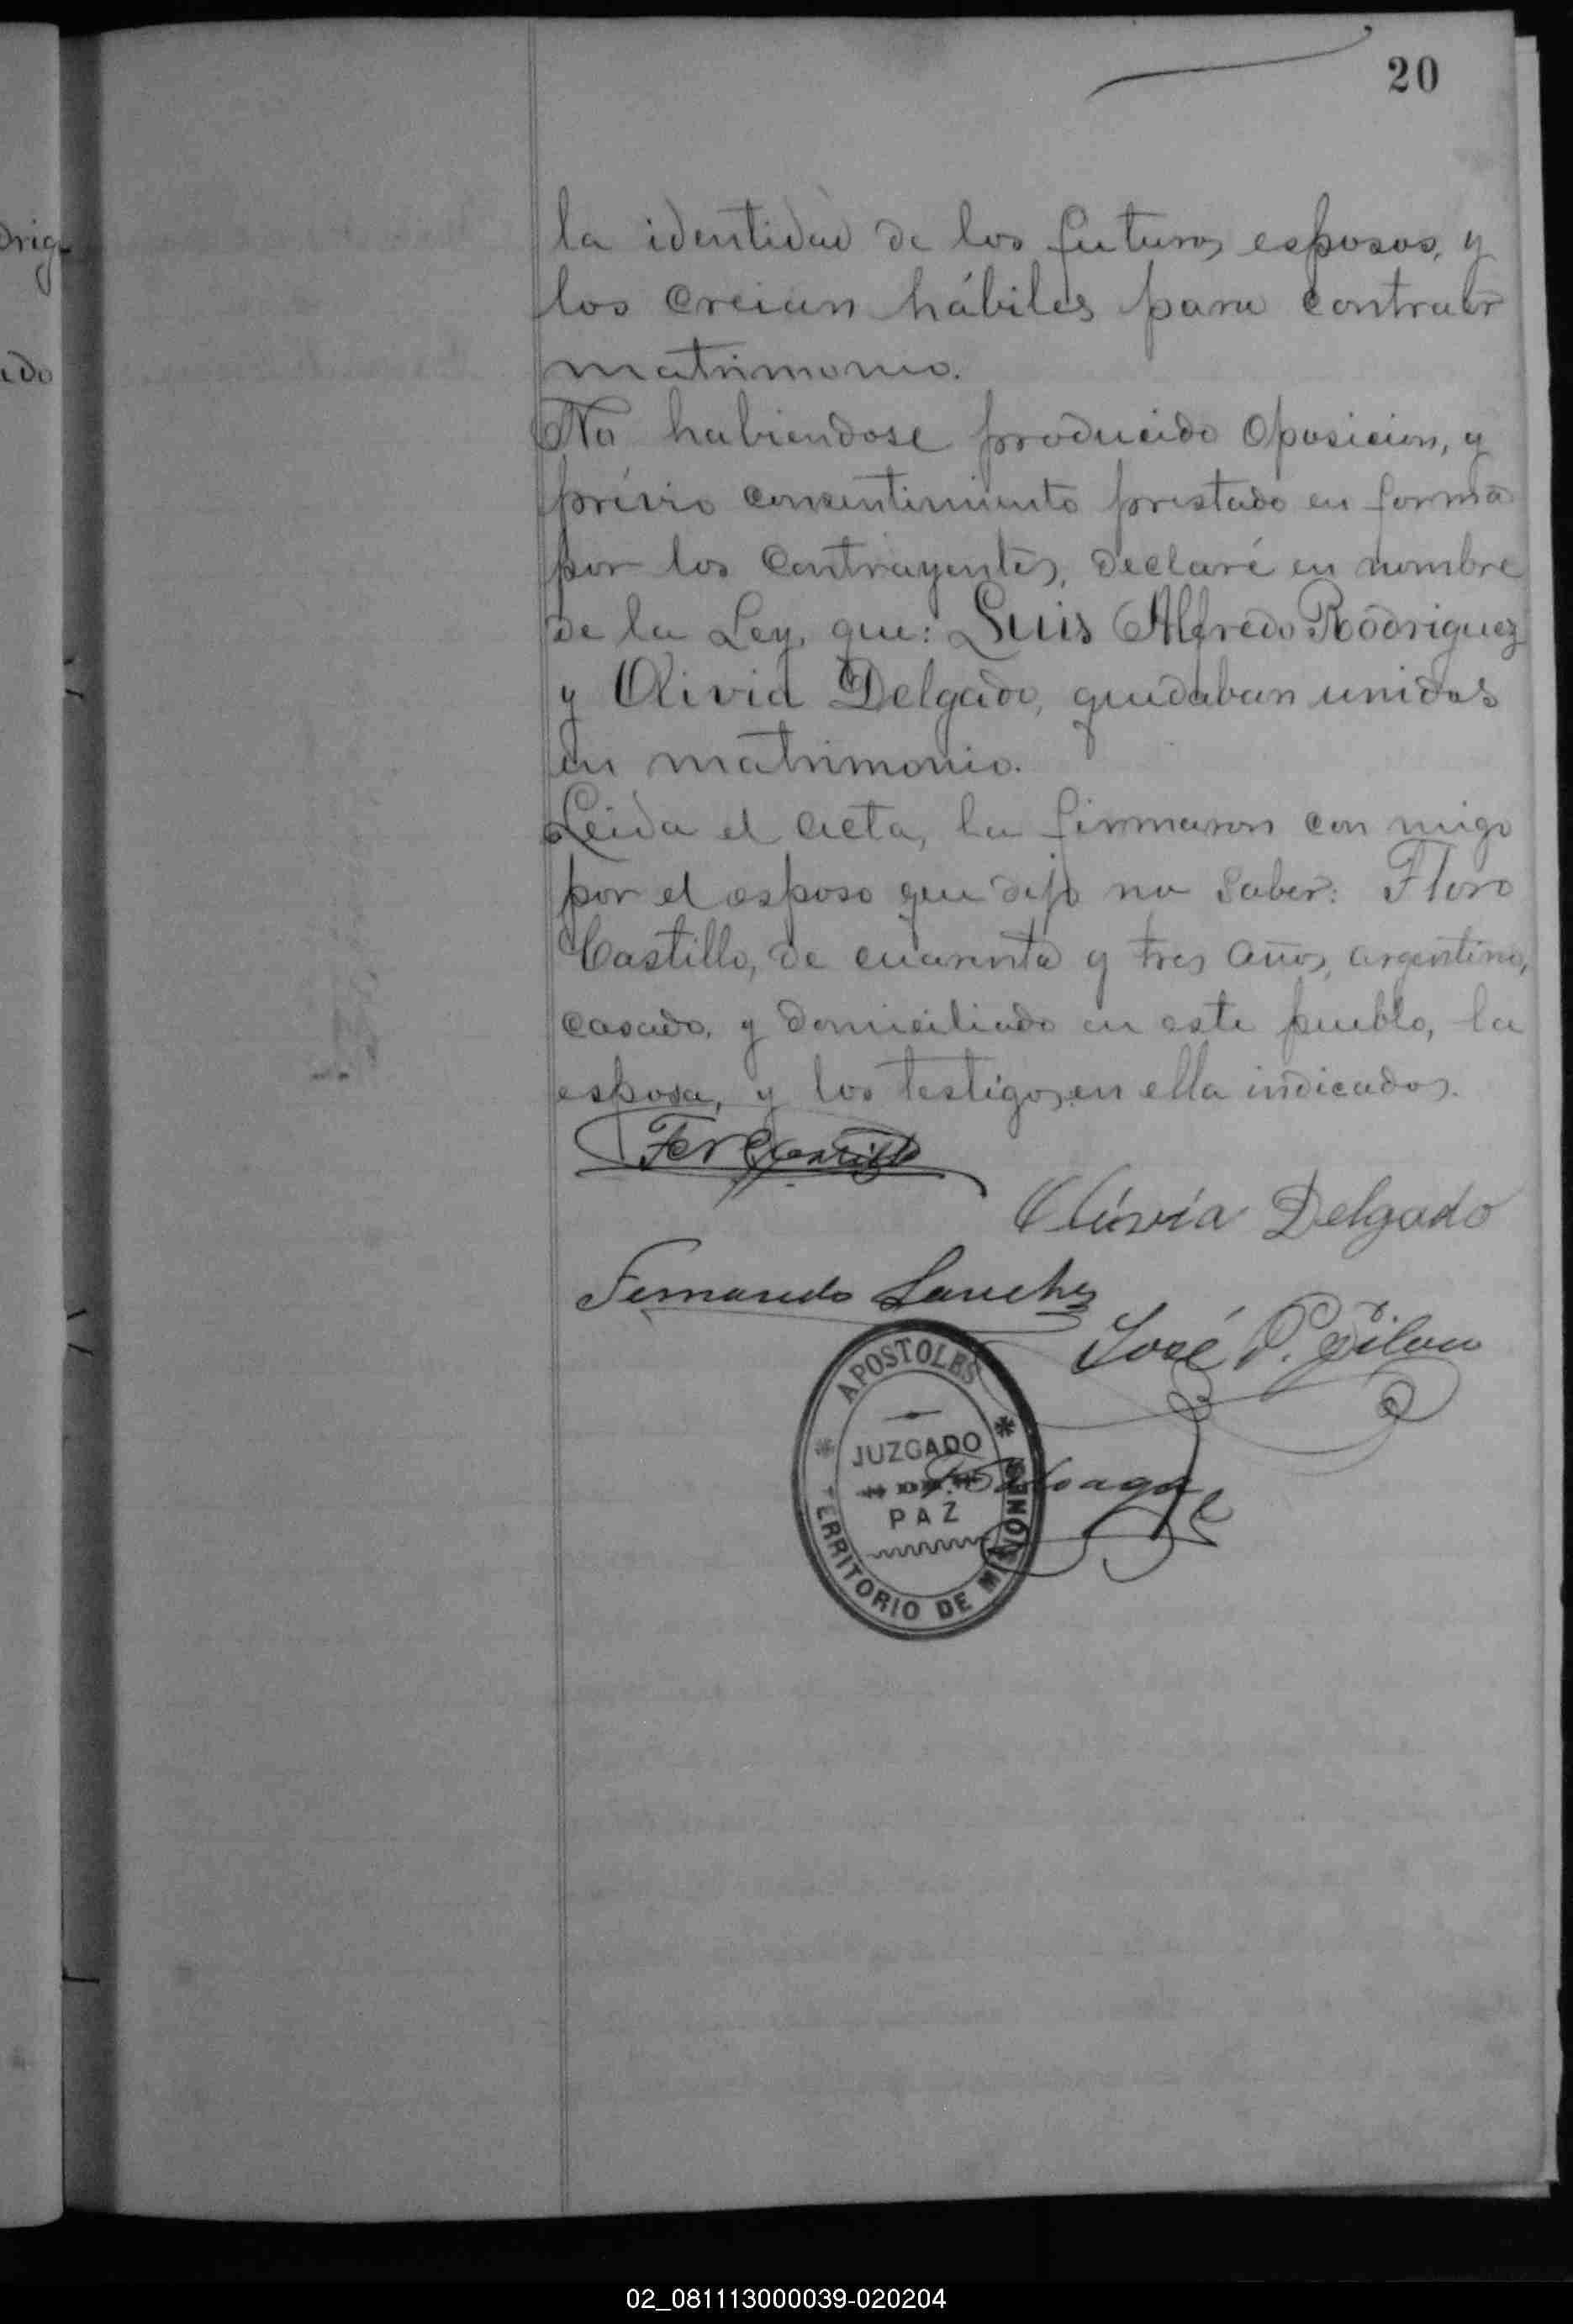 20
drig-
ido
la identidad de los futuros esposos, y
los creian hábiles para contraer
matrimonio.
No habiendose producido oposicion, y
prévio consentimiento prestado en forma
por los contrayentes, declaré en nombre
de la Ley, que: Luis Alfredo Rodriguez
y Olivia Delgado, quedaban unidos
en matrimonio.
Leida el acta, la firmaron con migo
por el esposo que dijo no saber: Floro
Castillo, de cuarenta y tres años, argentino,
casado, y domiciliado en este pueblo, la
esposa, y los testigos en ella indicados.
Castillo
Olivia Delgado
Fernando Sanchez
José P. Silva
APOSTOLES
JUZGADO
DE
PAZ
TERRITORIO DE MISIONES
02_081113000039-020204